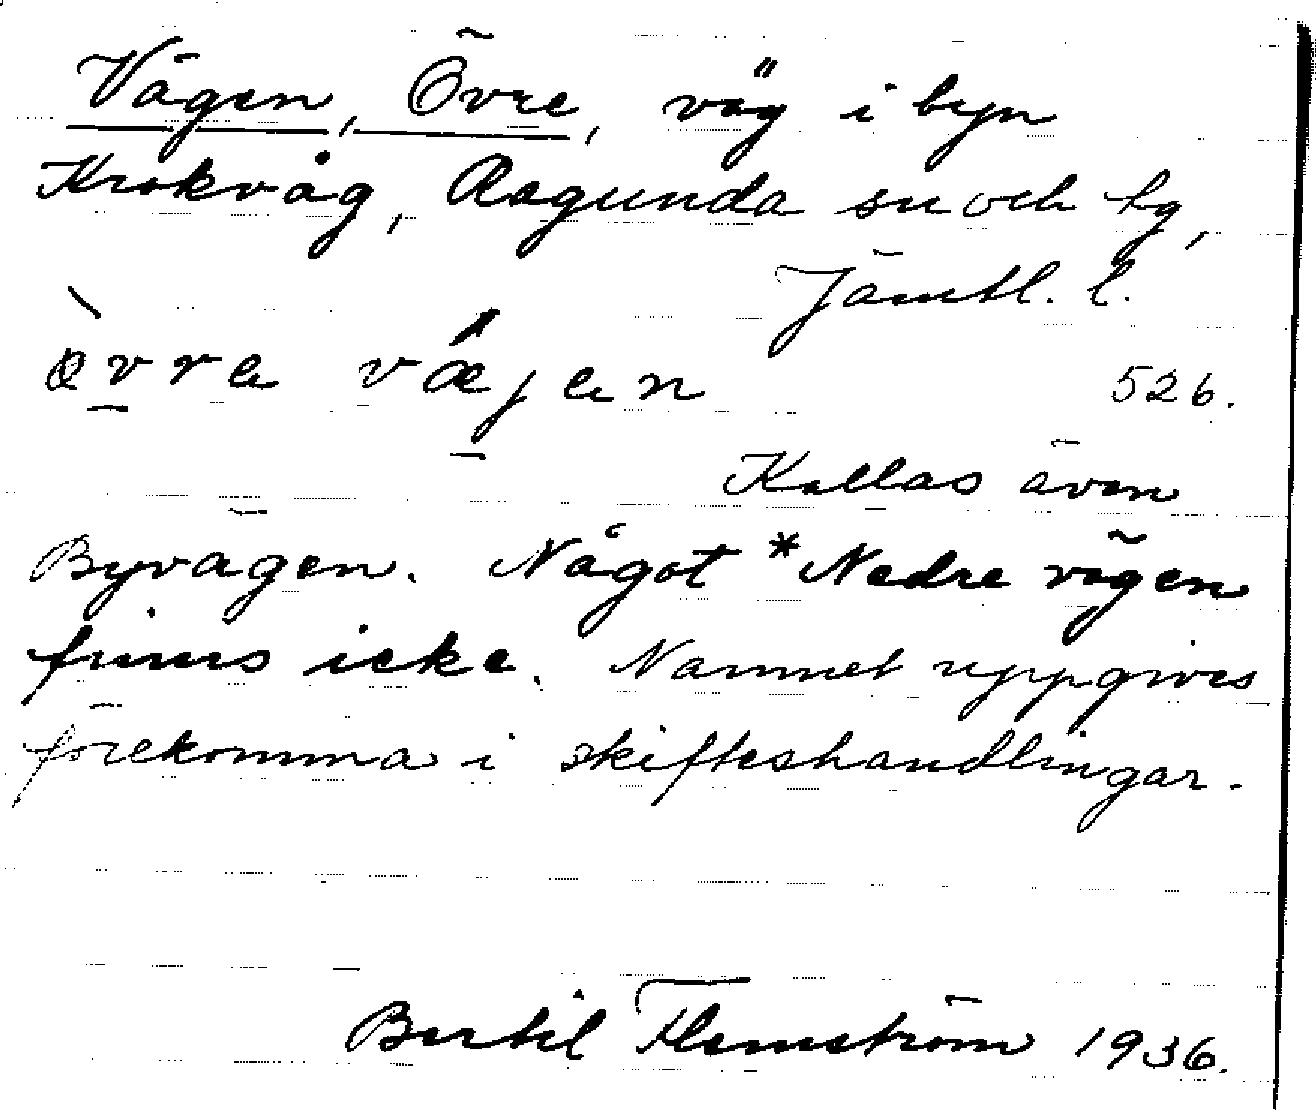 Vägen, Övre, väg i byn
Krokvåg, Ragunda sn och tg,
Jämtl. l.
ø̀vra vǽjen 526.
Kallas även
Byvägen. Något *Nedre vägen
finns icke. Namnet uppgives
förekomma i skifteshandlingar.
Bertil Flemström 1936.